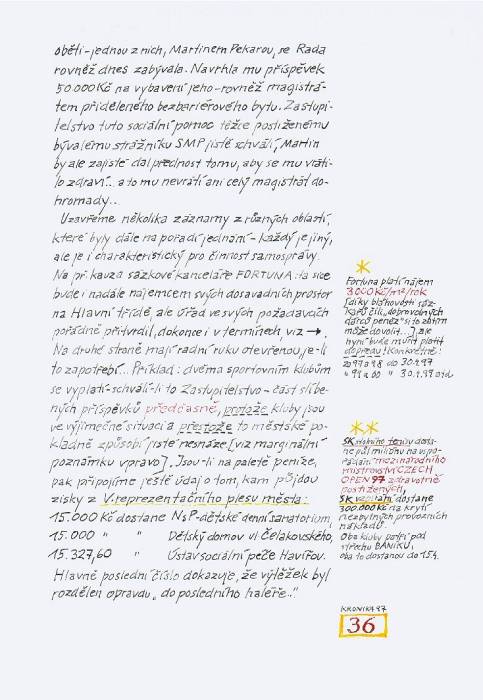 oběti-jednou z nich, Martinem Pekarou, se Rada
rovněž dnes zabývala. Navrhla mu příspěvek
50.000 Kč na vybavení jeho-rovněž magistrá-
tem přiděleného bezbariérového bytu. Zastupi-
telstvo tuto sociální pomoc těžce postiženému
bývalému strážníku SMP jistě schválí, Martin
by ale zajisté dal přednost tomu, aby se mu vráti-
lo zdraví... a to mu nevrátí ani celý magistrát do-
hromady...
Uzavřeme několika záznamy z různých oblastí,
které byly dále na pořadí jednání - každý je jiný,
ale je i charakteristický pro činnost samosprávy.
Na př. kauza sázkové kanceláře FORTUNA: ta sice
bude i nadále nájemcem svých dosavadních prostor
na Hlavní třídě, ale úřad ve svých požadavcích
pořádně přitvrdil, dokonce i v termínech, viz →.
Na druhé straně mají radní ruku otevřenou, je-li
to zapotřebí... Příklad: dvěma sportovním klubům
se vyplatí-schválí-li to Zastupitelstvo - část slíbe-
ných příspěvků předčasně, protože kluby jsou
ve výjimečné situaci a přestože to městské po-
kladně způsobí jisté nesnáze [viz marginální
poznámku vpravo]. Jsou-li na paletě peníze,
pak připojíme ještě údaj o tom, kam půjdou
zisky z V. reprezentačního plesu města:
15.000 Kč dostane NsP-dětské denní sanatorium,
15.000 " " Dětský domov ul Čelakovského,
15.327,60 " Ústav sociální péče Havířov.
Hlavně poslední číslo dokazuje, že výtěžek byl
rozdělen opravdu „do posledního haléře..."
Fortuna platí nájem
3.000 Kč/m²/rok
[díky bláhovosti sáz-
kařů čili „dobrovolných
dárců peněz" si to ovšem
může dovolit...] ale
nyní bude muset platit
dopředu! Konkrétně:
do 30.4.97
SK stolního tenisu dosta-
ne půl miliónu na uspo-
řádání mezinárodního
mistrovství CZECH
OPEN 97 zdravotně
postižených,
SK vzpírání dostane
300.000 Kč na krytí
nezbytných provozních
nákladů.
Oba kluby patří pod
střechu BANÍKU,
oba to dostanou do 15.4.
KRONIKA 97
36